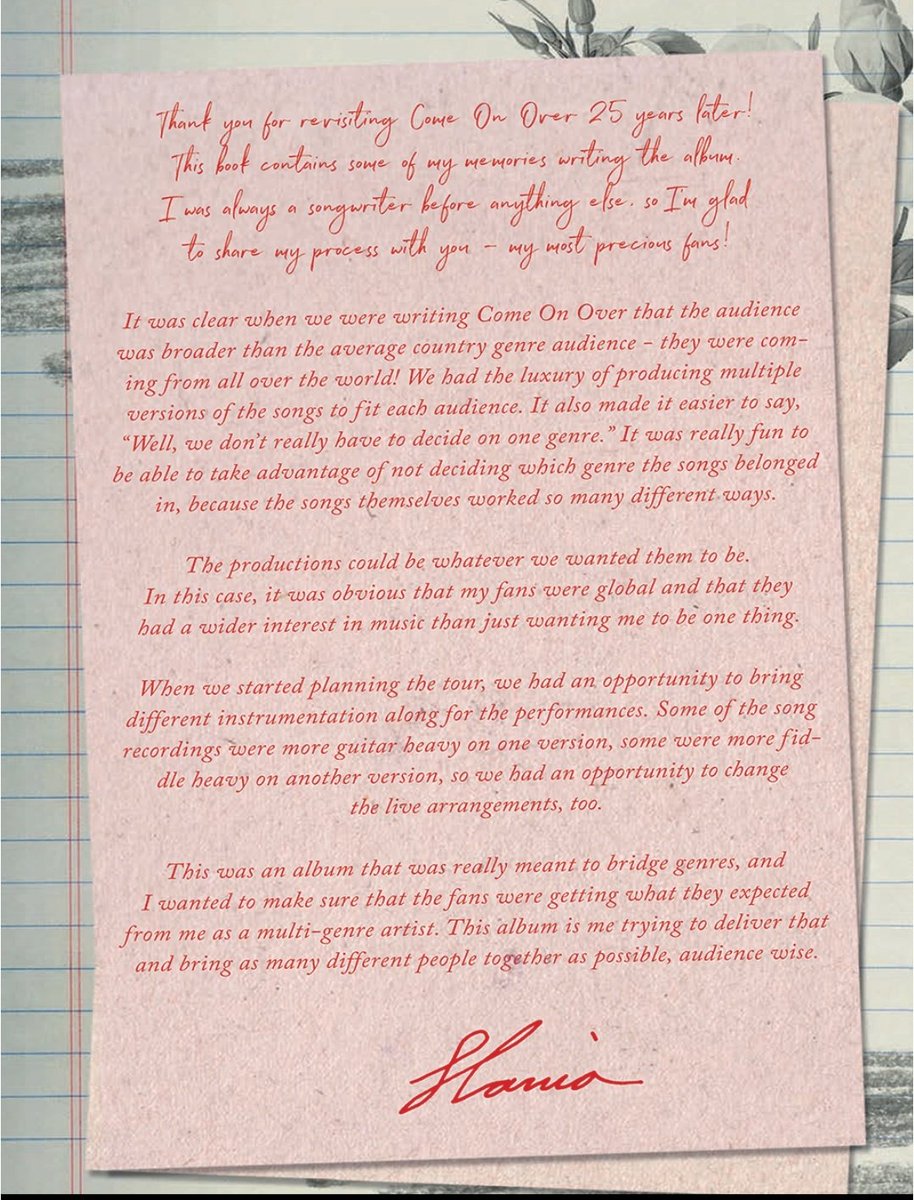 Thank you for revisiting Come On Over 25 years later!
This book contains some of my memories writing the album.
I was always a songwriter before anything else, so I'm glad
to share my process with you – my most precious fans!
It was clear when we were writing Come On Over that the audience
was broader than the average country genre audience – they were com-
ing from all over the world! We had the luxury of producing multiple
versions of the songs to fit each audience. It also made it easier to say,
“Well, we don’t really have to decide on one genre.” It was really fun to
be able to take advantage of not deciding which genre the songs belonged
in, because the songs themselves worked so many different ways.
The productions could be whatever we wanted them to be.
In this case, it was obvious that my fans were global and that they
had a wider interest in music than just wanting me to be one thing.
When we started planning the tour, we had an opportunity to bring
different instrumentation along for the performances. Some of the song
recordings were more guitar heavy on one version, some were more fid-
dle heavy on another version, so we had an opportunity to change
the live arrangements, too.
This was an album that was really meant to bridge genres, and
I wanted to make sure that the fans were getting what they expected
from me as a multi-genre artist. This album is me trying to deliver that
and bring as many different people together as possible, audience wise.
Shania